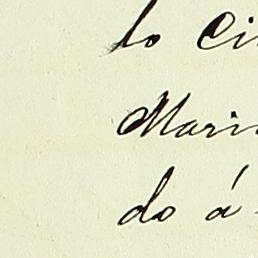 lo Ci
Mari
do á